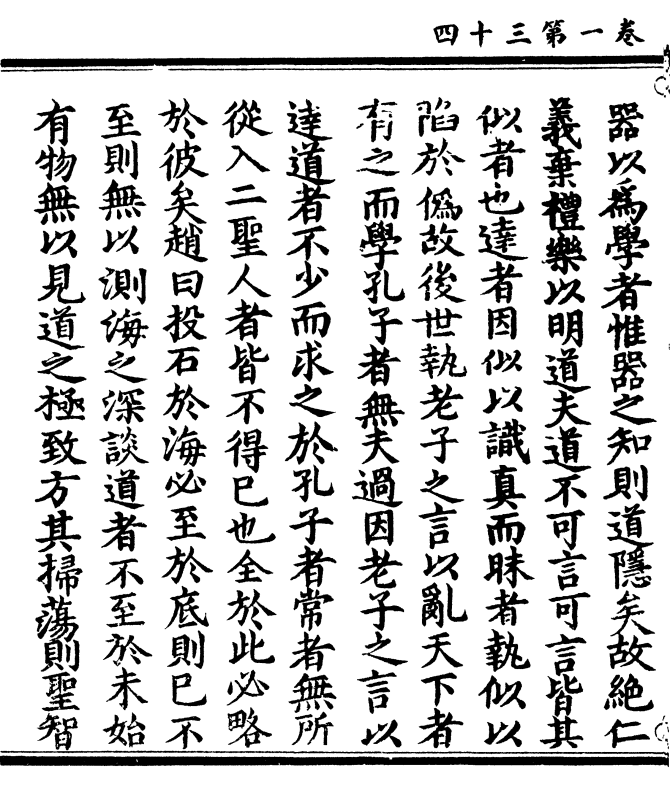 卷一第三十四
器以為學者惟器之知則道隱矣故絕仁
義棄禮樂以明道夫道不可言可言皆其
似者也達者因似以識真而昧者執似以
陷於僞故後世執老子之言以亂天下者
有之而學孔子者無夫過因老子之言以
達道者不少而求之於孔子者常者無所
從入二聖人者皆不得已也全於此必略
於彼矣趙曰投石於海必至於底則已不
至則無以測海之深談道者不至於未始
有物無以見道之極致方其掃蕩則聖智